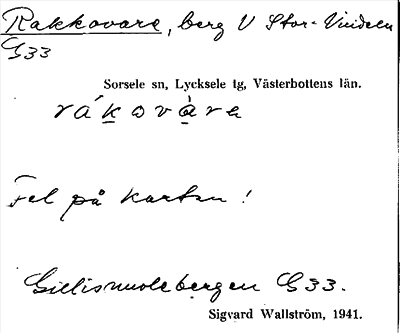 Rakkovare, berg V Stor-Vindeln
G33
Sorsele sn, Lycksele tg, Västerbottens län.
rákovàre
Fel på kartan!
Gillismuolebergen G33.
Sigvard Wallström, 1941.